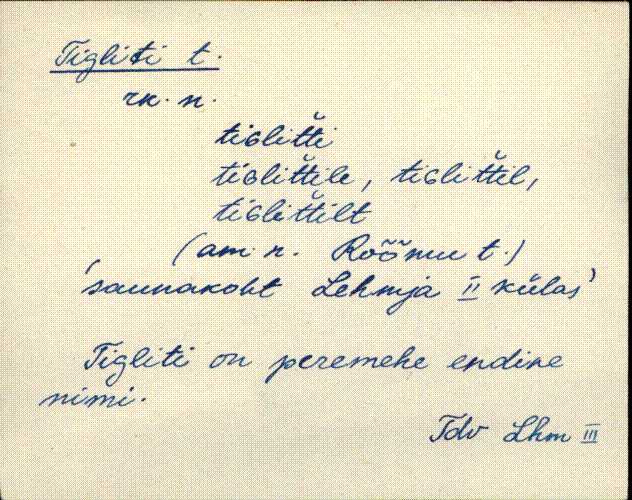 Tigliti t.
rk. n.
tiɢlitti
tiɢlittile, tiɢlittil,
tiɢlittilt
(am. n. Rõõmu t.)
'saunakoht Lehmja II külas'
Tigliti on peremehe endine
nimi.
Tdv Lhm III